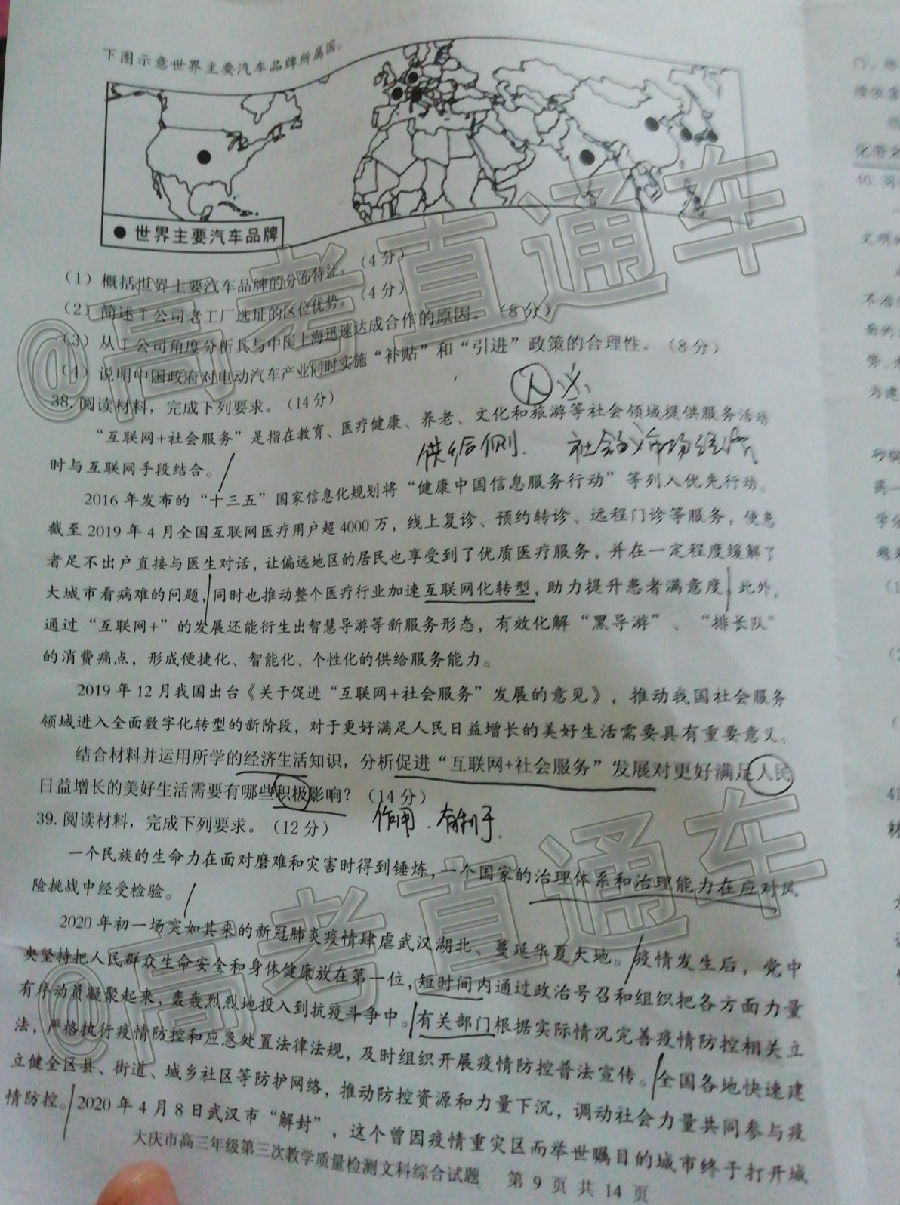 下图示意世界主要汽车品牌所属国。
● 世界主要汽车品牌
(1) 概括世界主要汽车品牌的分布特征。(4分)
(2) 简述T公司各工厂选址的区位优势。(4分)
(3) 从T公司角度分析其与中国上海迅速达成合作的原因。(8分)
(4) 说明中国政府对电动汽车产业同时实施“补贴”和“引进”政策的合理性。(8分)
38.阅读材料，完成下列要求。(14分)
“互联网+社会服务”是指在教育、医疗健康、养老、文化和旅游等社会领域提供服务活动
供给侧. 社会 市场经济
时与互联网手段结合。
2016年发布的“十三五”国家信息化规划将“健康中国信息服务行动”等列入优先行动。
截至2019年4月全国互联网医疗用户超4000万，线上复诊、预约转诊、远程门诊等服务，使患
者足不出户直接与医生对话，让偏远地区的居民也享受到了优质医疗服务，并在一定程度缓解了
大城市看病难的问题，同时也推动整个医疗行业加速互联网化转型，助力提升患者满意度。此外，
通过“互联网+”的发展还能衍生出智慧导游等新服务形态，有效化解“黑导游”、“排长队”
的消费痛点，形成便捷化、智能化、个性化的供给服务能力。
2019年12月我国出台《关于促进“互联网+社会服务”发展的意见》，推动我国社会服务
领域进入全面数字化转型的新阶段，对于更好满足人民日益增长的美好生活需要具有重要意义。
结合材料并运用所学的经济生活知识，分析促进“互联网+社会服务”发展对更好满足人民
日益增长的美好生活需要有哪些积极影响？(14分)
39.阅读材料，完成下列要求。(12分)
作用. 有利于
一个民族的生命力在面对磨难和灾害时得到锤炼，一个国家的治理体系和治理能力在应对风
险挑战中经受检验。
2020年初一场突如其来的新冠肺炎疫情肆虐武汉湖北、蔓延华夏大地。疫情发生后，党中
央坚持把人民群众生命安全和身体健康放在第一位，短时间内通过政治号召和组织把各方面力量
有序动员凝聚起来，轰轰烈烈地投入到抗疫斗争中。有关部门根据实际情况完善疫情防控相关立
法，严格执行疫情防控和应急处置法律法规，及时组织开展疫情防控普法宣传。全国各地快速建
立健全区县、街道、城乡社区等防护网络，推动防控资源和力量下沉，调动社会力量共同参与疫
情防控。2020年4月8日武汉市“解封”，这个曾因疫情重灾区而举世瞩目的城市终于打开城
大庆市高三年级第三次教学质量检测文科综合试题 第 9 页 共 14 页
@高考直通车
@高考直通车